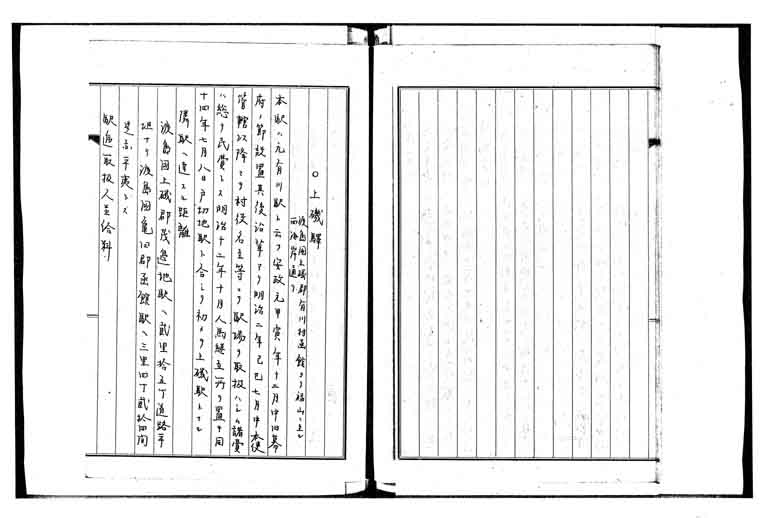 ○上磯驛
渡島国上磯郡有川村函館ヨリ福山ヘ上ル
西海岸通リ
本駅ハ元有川駅ト云フ安政元甲寅年十二月中旧幕
府ノ節設置其後沿革アリ明治二年己巳七月中本使
管轄以降ニ至リ村役名主等ニテ駅場ヲ取扱ハシム諸費
ハ総テ民費トス明治十二年十月人馬継立所ヲ置キ同
十四年七月八日戸切地駅ト合シテ初メテ上磯駅トナル
隣駅ヘ達スル距離
渡島国上磯郡茂邊地駅ヘ貳里拾五丁道路平
坦ナリ渡島国亀田郡函館駅ヘ三里四丁貳拾四間
是亦平夷トス
駅逓取扱人并給料